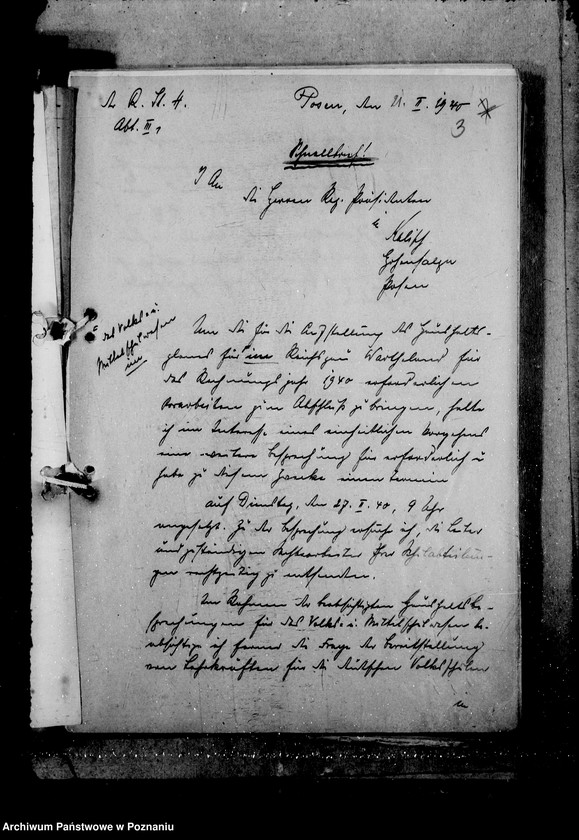 D. R. St. H.
Abt. III,
Posen, den 21. II. 1940
3
Schnellbrief!
An
die Herren Reg. Präsidenten
in
Kalisch
Hohensalza
Posen
das Volks- u.
Mittelschulwesen
im
Um die für die Aufstellung des Haushalts-
planes für im Reichsgau Wartheland für
das Rechnungsjahr 1940 erforderlichen
Vorarbeiten zum Abschluß zu bringen, halte
ich im Interesse eines einheitlichen Vorgehens
eine weitere Besprechung für erforderlich u
habe zu diesem Zwecke einen Termin
auf Dienstag, den 27. II. 40, 9 Uhr
angesetzt. Zu der Besprechung ersuche ich, die Leiter
und zuständigen Sachbearbeiter Ihrer Schulabteilun-
gen rechtzeitig zu entsenden.
Im Rahmen der beabsichtigten Haushaltsbe-
sprechungen für das Volks- u. Mittelschulwesen be-
absichtige ich ferner die Frage der Bereitstellung
von Lehrkräften für die deutschen Volksschulen
Archiwum Państwowe w Poznaniu